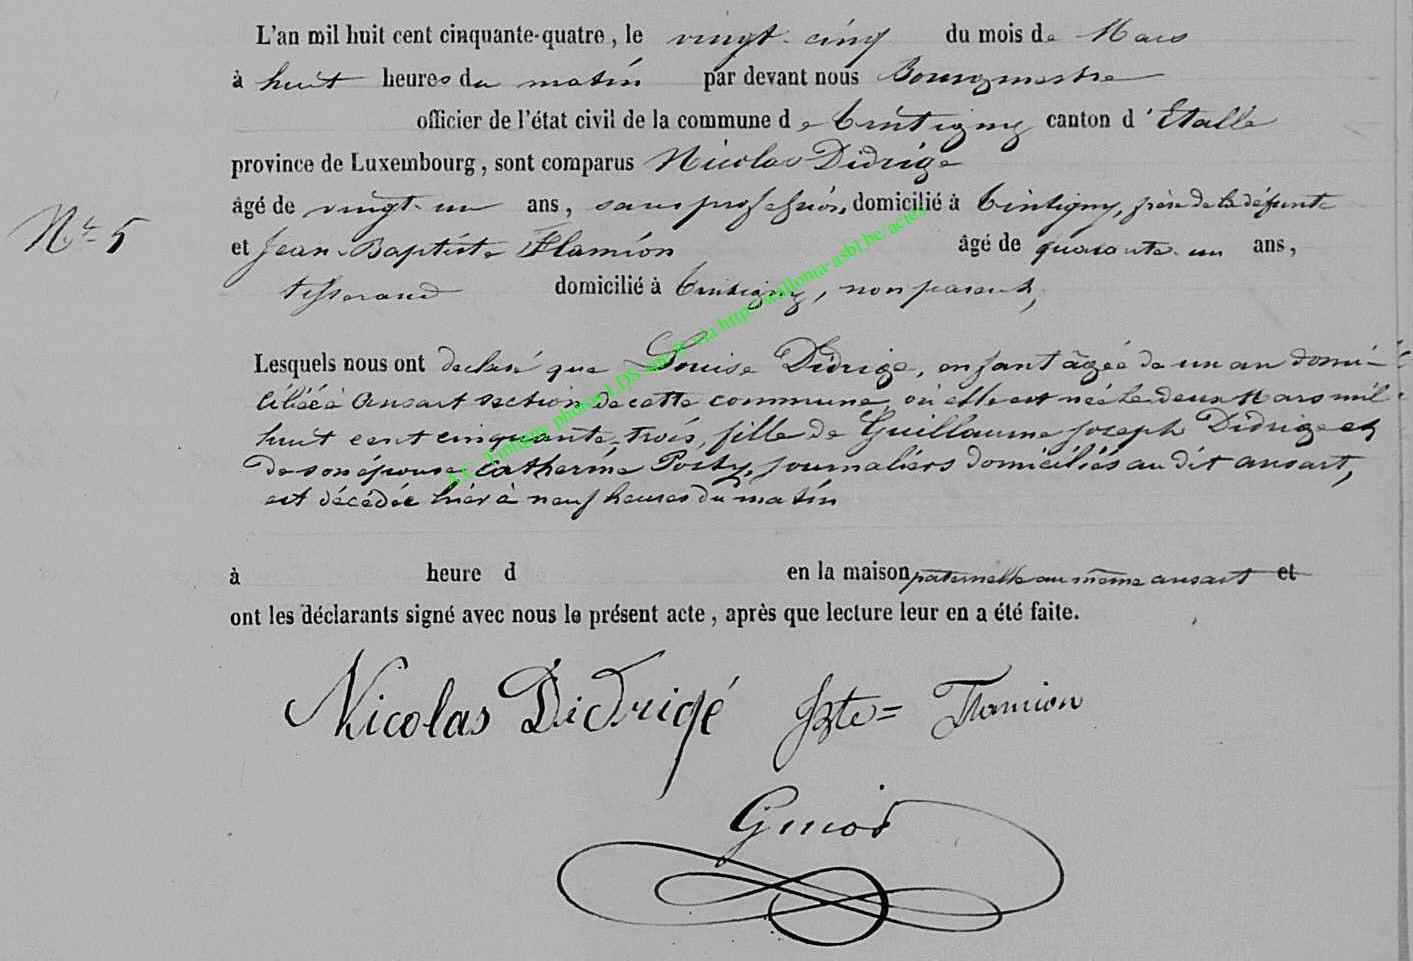 L'an mil huit cent cinquante-quatre, le vingt-cinq du mois de Mars
à huit heures du matin par devant nous Bourgmestre
officier de l'état civil de la commune de Tintigny canton d'Etalle
province de Luxembourg, sont comparus Nicolas Didrige
âgé de vingt-un ans, sans profession, domicilié à Tintigny, frère de la défunte
N° 5
et Jean-Baptiste Flamion âgé de quarante-un ans,
tisserand domicilié à Tintigny, non parent,
Lesquels nous ont déclaré que Louise Didrige, enfant âgée de un an domi-
ciliée à Ansart section de cette commune où elle est née le deux Mars mil
huit cent cinquante-trois, fille de Guillaume Joseph Didrige et
de son épouse Catherine Posty, journaliers domiciliés au dit ansart,
est décédée hier à neuf heures du matin
à heure d en la maison paternelle au même ansart et
ont les déclarants signé avec nous le présent acte, après que lecture leur en a été faite.
Nicolas Didrigé Jbte= Flamion
A.C. Tintigny photos LDS site via http://wallonia-asbl.be/actes